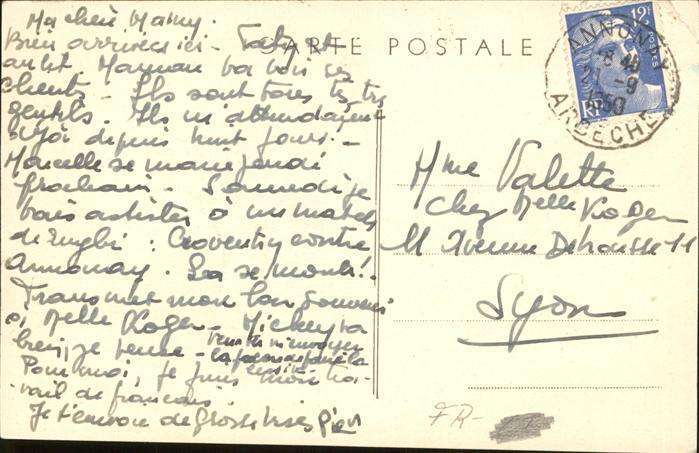 Ma chère Mamy.
Bien arrivées ici -
Maman va voir ses
clients - Ils sont tous très très
gentils. Ils m'attendaient
déjà depuis huit jours. -
Marcelle se marie jeudi
prochain - Samedi je
vais assister à un match
de rugby : Coventry contre
Annonay. Ça se monte!.
Transmet mon bon souvenir
à Melle Roger - Mickey va
bien, je pense -
Pour moi, je fais mon tra-
vail de français.
Je t'envoie de grosses bises
CARTE POSTALE
12F
POSTES
RF
ANNONAY
21 - 9
1950
ARDECHE
Mme Valette
chez Melle Roger
11 Avenue
Lyon
FR-